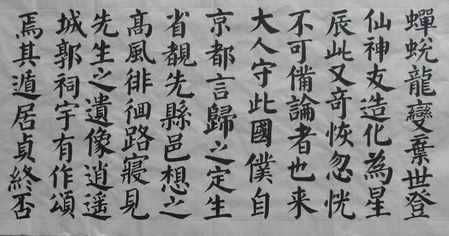 蟬蛻龍變棄世登
仙神友造化為星
辰此又奇恢忽恍
不可備論者也来
大人守此國僕自
京都言歸之定生
省覩先縣邑想之
髙風徘徊路寢見
先生之遺像逍遥
城郭祠宇有作頌
焉其遁居貞終否